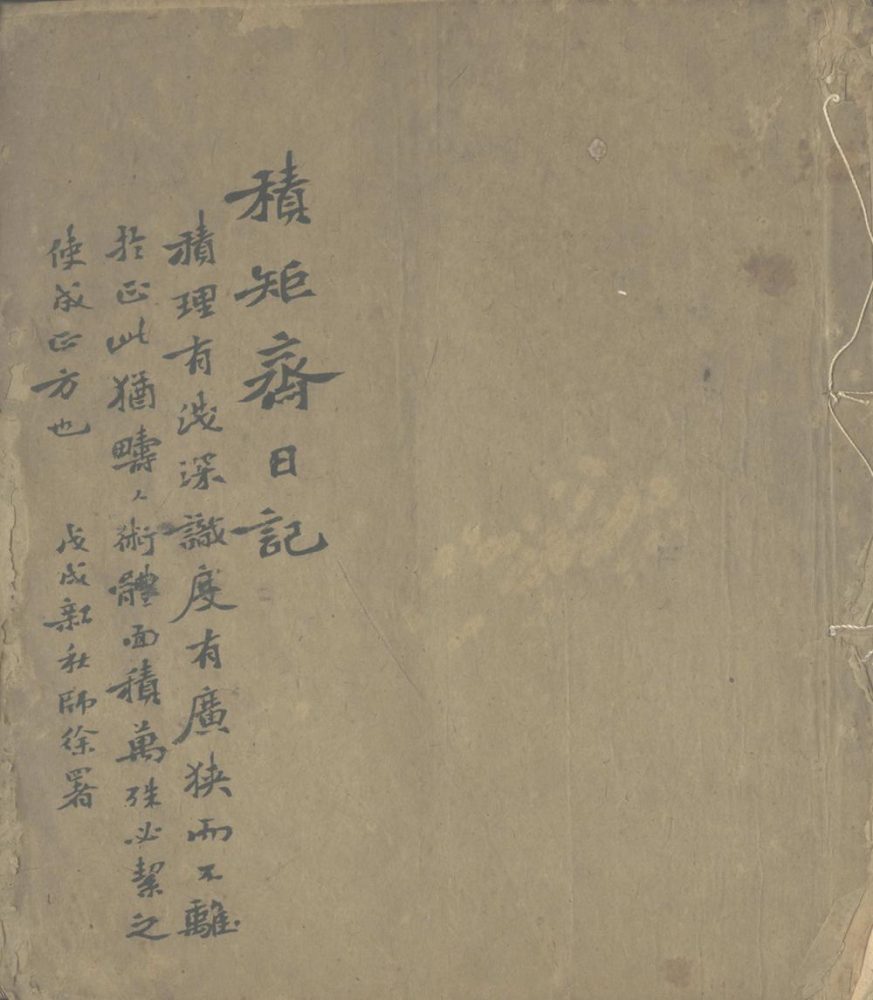 積矩齋日記
積理有淺深識度有廣狹而不離
於正此猶疇人術體面積萬殊必絜之
使成正方也　戊戌新秋師徐署